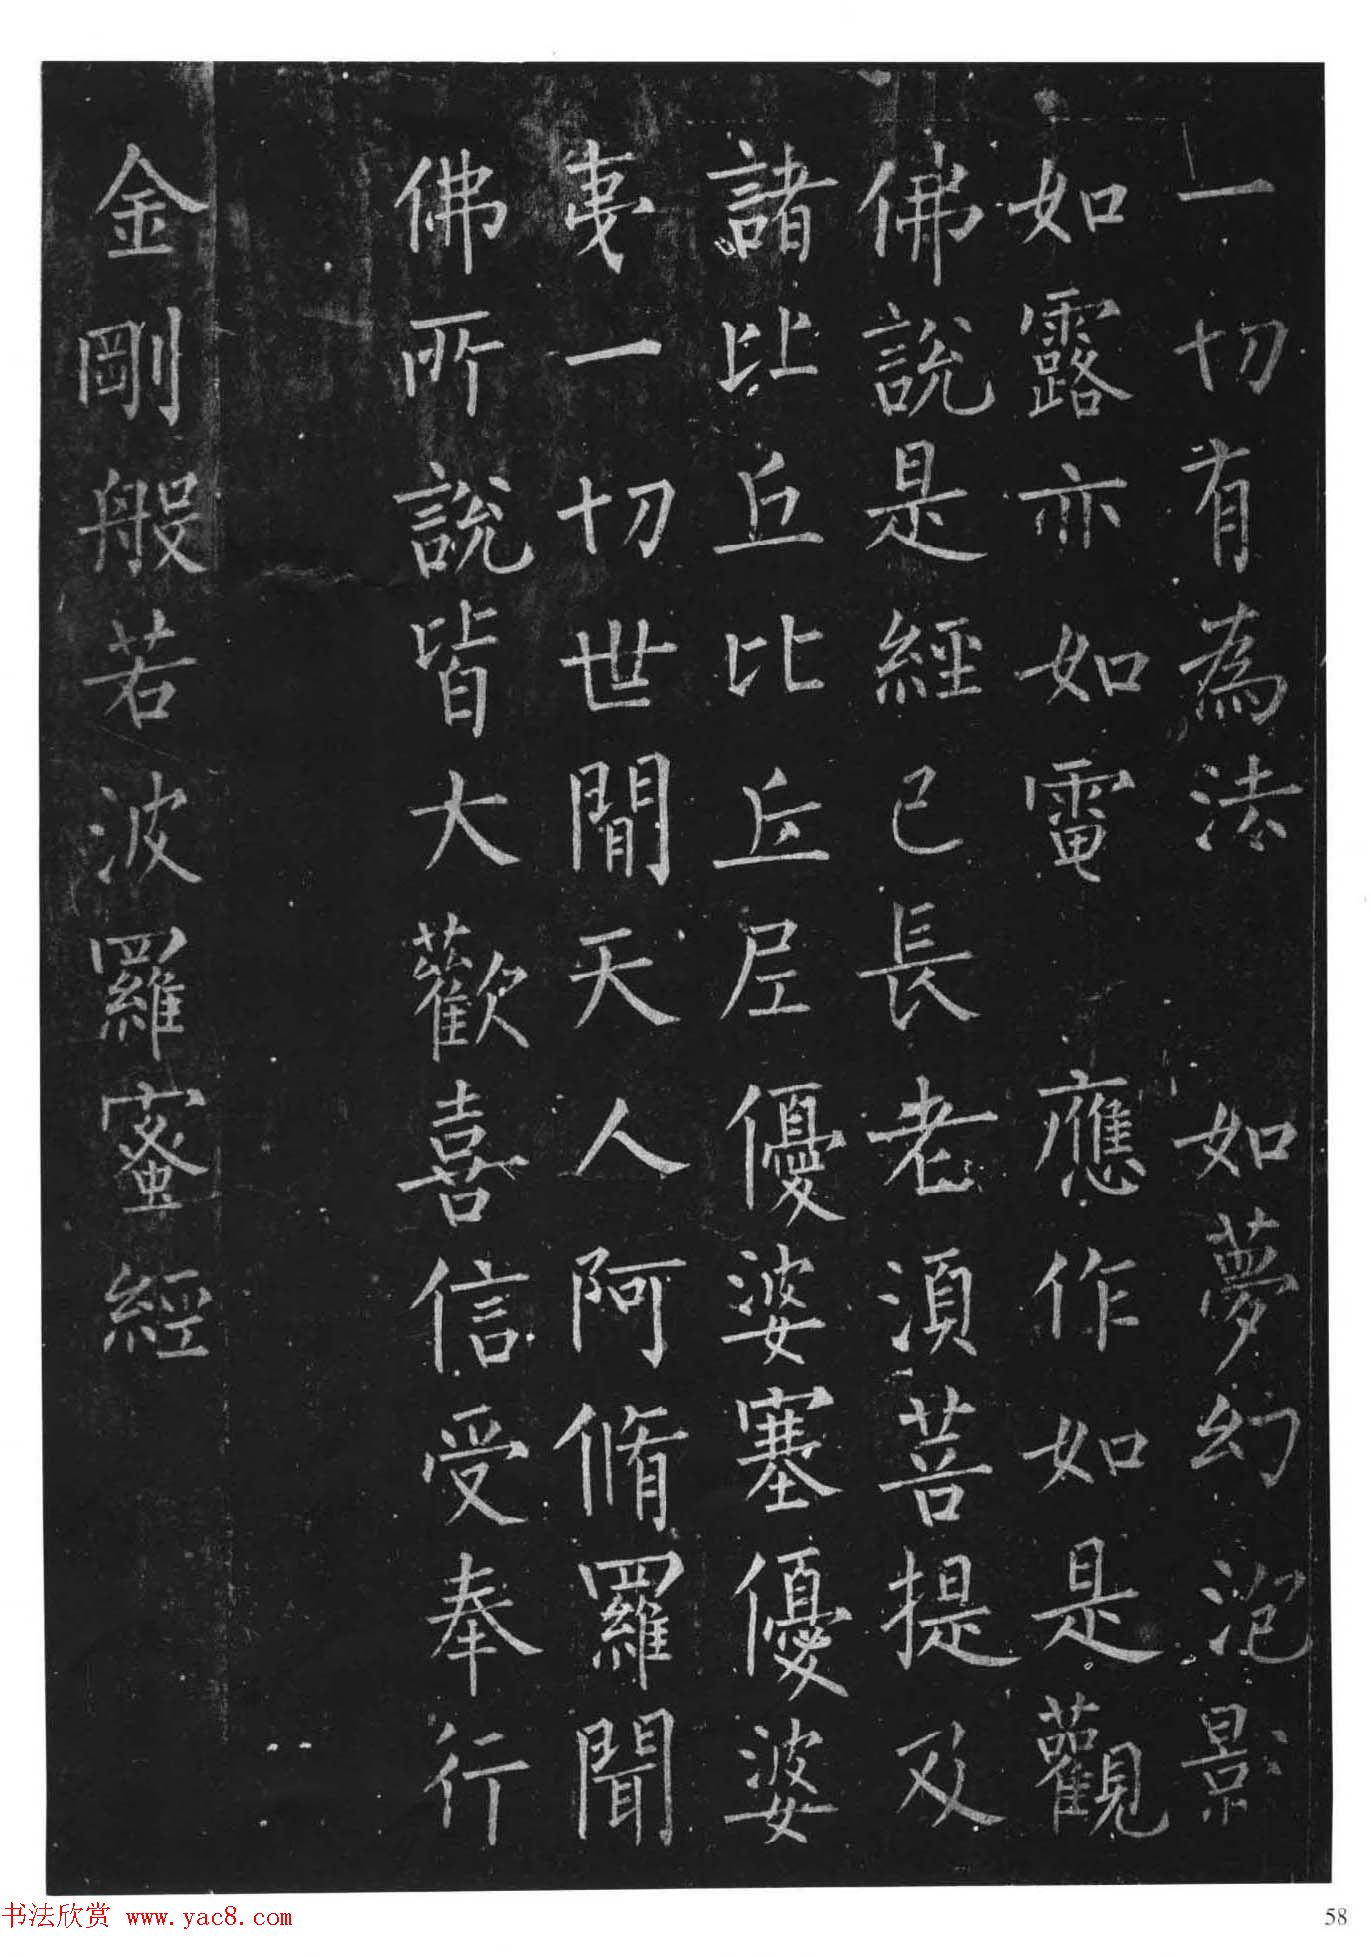 一切有為法　如夢幻泡影
如露亦如電　應作如是觀
佛說是經已長老須菩提及
諸比丘比丘尼優婆塞優婆
夷一切世間天人阿脩羅聞
佛所說皆大歡喜信受奉行
金剛般若波羅蜜經
书法欣赏 www.yac8.com
58